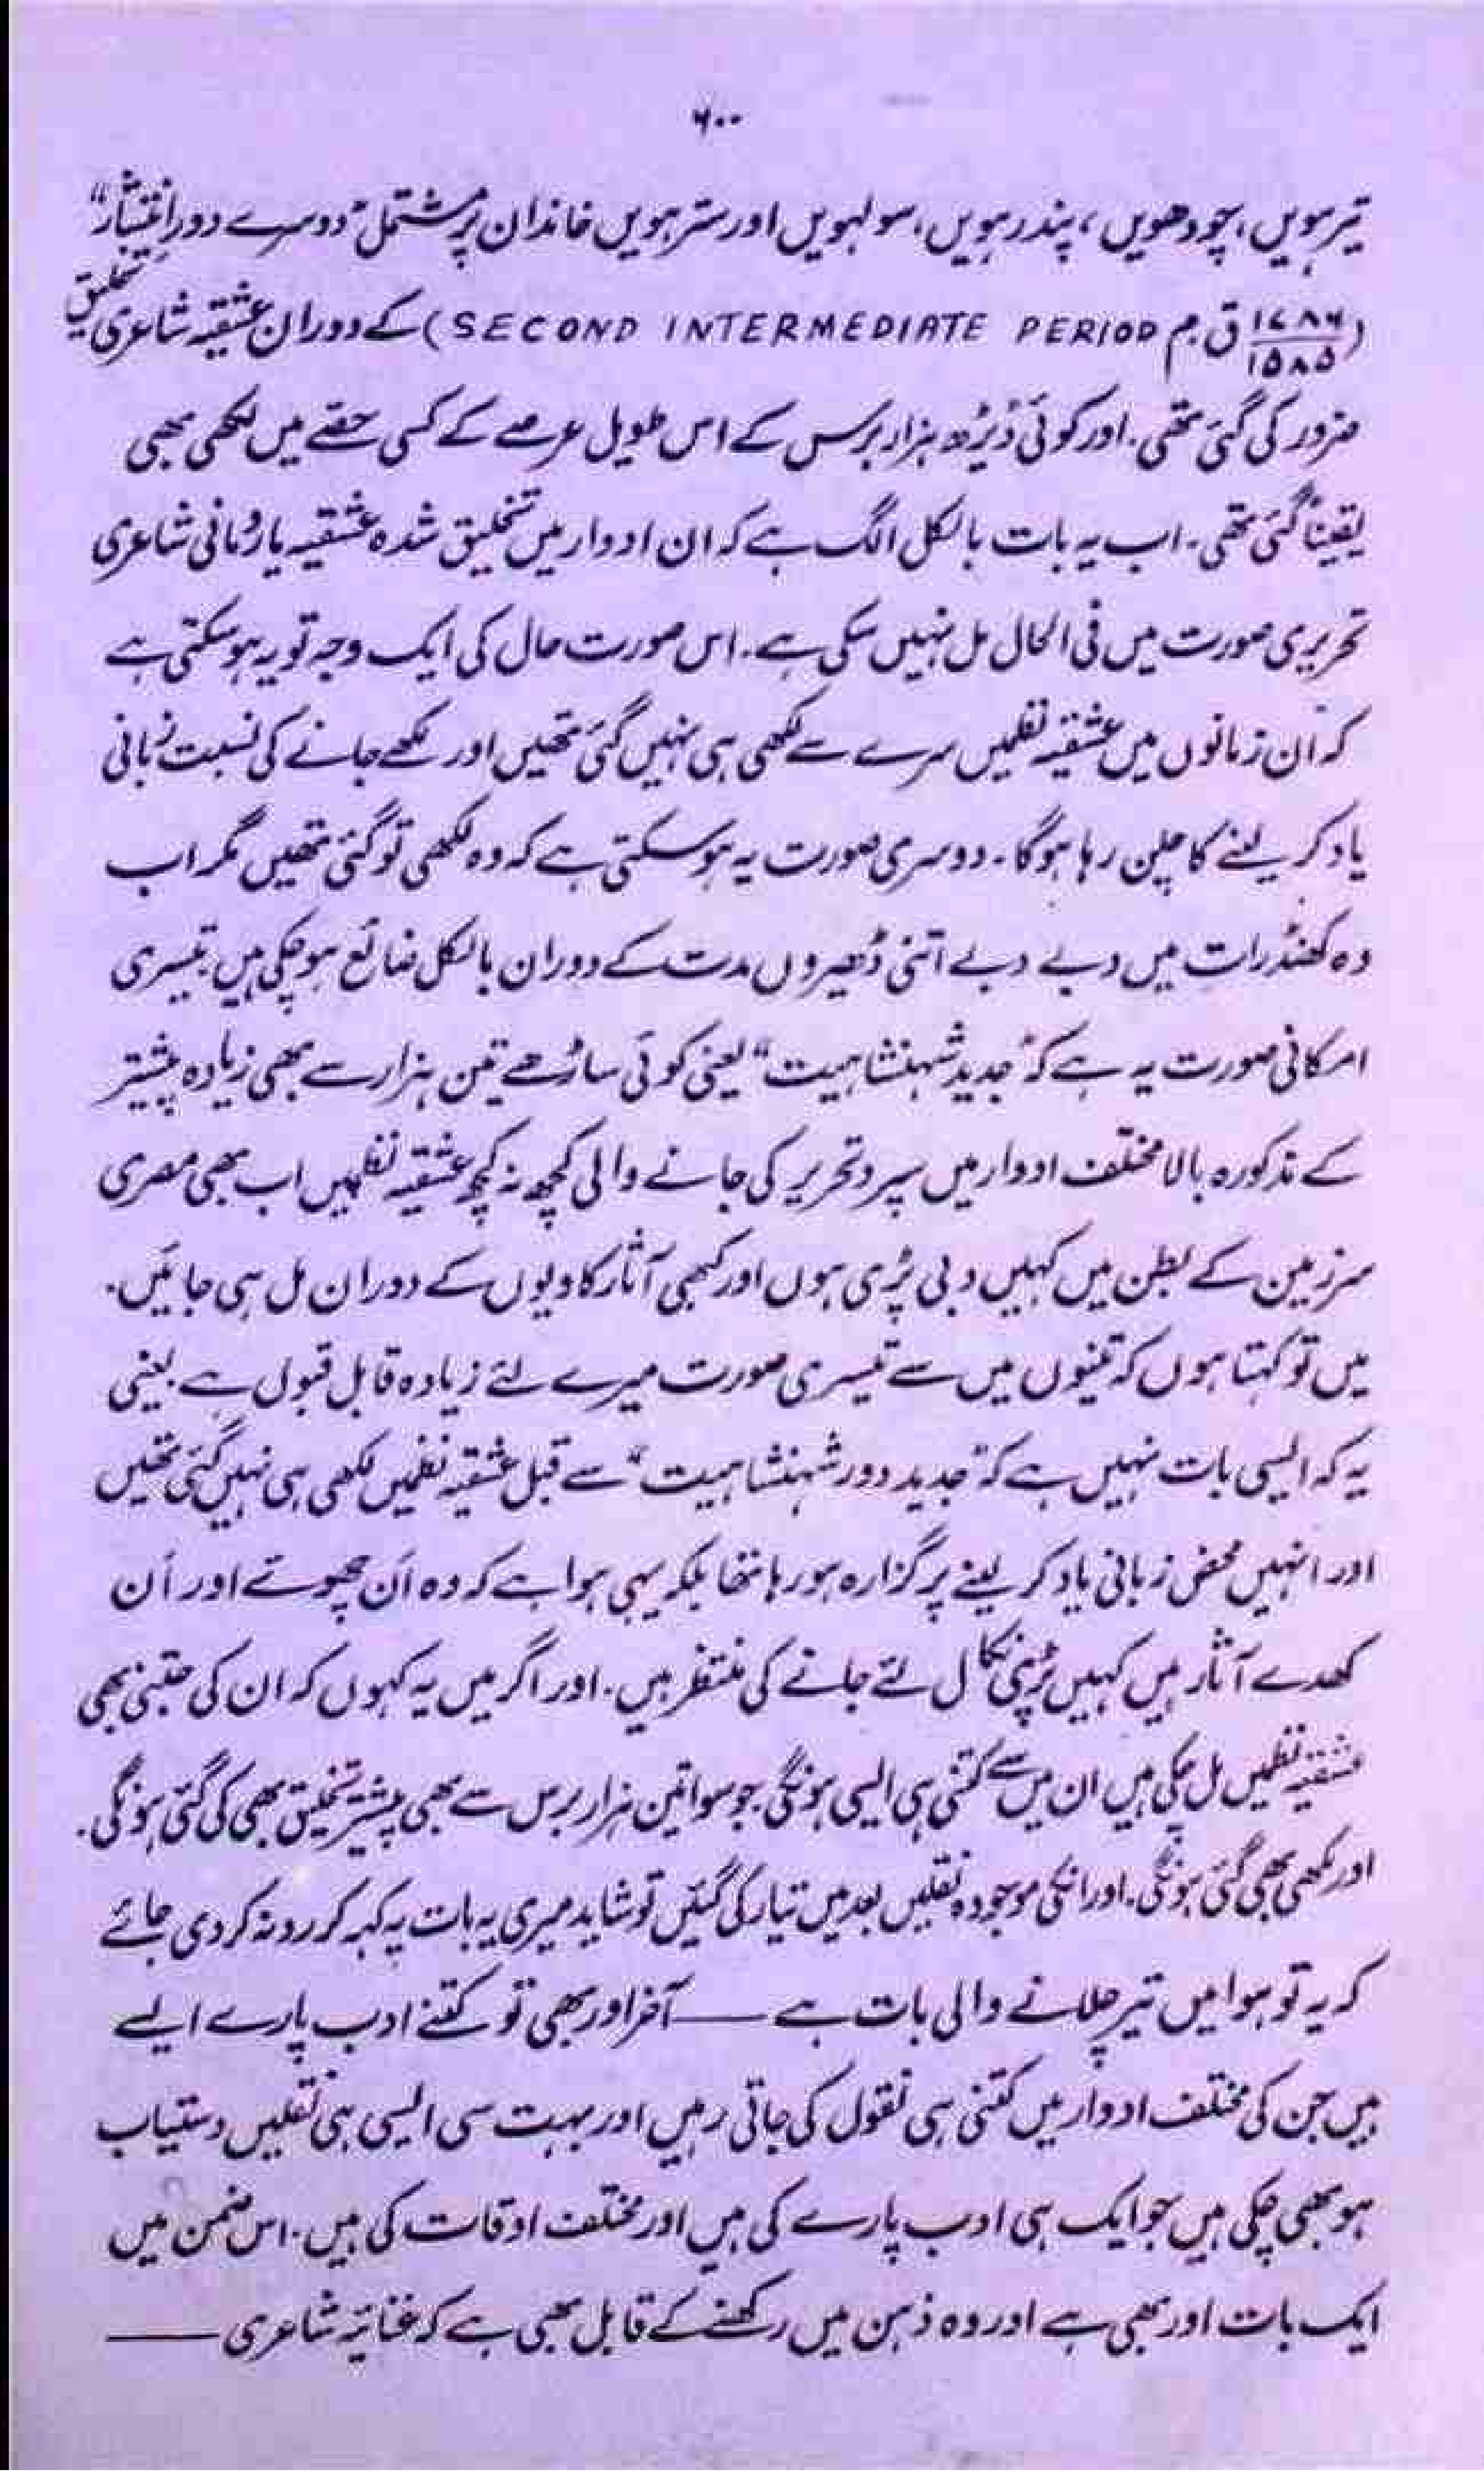 ۶۰۰
تیرہویں، چودھویں، پندرہویں، سولہویں اور سترہویں خاندان پر مشتمل "دوسرے دورِ انتشار"
(۱۷۸۶/۱۵۸۵ ق.م SECOND INTERMEDIATE PERIOD) کے دوران عشقیہ شاعری تخلیق
ضرور کی گئی تھی. اور کوئی ڈیڑھ ہزار برس کے اس طویل عرصے کے کسی حصے میں لکھی بھی
یقیناً گئی تھی. اب یہ بات بالکل الگ ہے کہ ان ادوار میں تخلیق شدہ عشقیہ یا رُمانی شاعری
تحریری صورت میں فی الحال مل نہیں سکی ہے. اس صورت حال کی ایک وجہ تو یہ ہو سکتی ہے
کہ اُن زمانوں میں عشقیہ نظمیں سرے سے لکھی ہی نہیں گئی تھیں اور لکھے جانے کی نسبت زبانی
یاد کر لینے کا چلن رہا ہوگا. دوسری صورت یہ ہو سکتی ہے کہ وہ لکھی تو گئی تھیں مگر اب
وہ کھنڈرات میں دبے دبے اتنی ڈھیروں مدت کے دوران بالکل ضائع ہو چکی ہیں. تیسری
امکانی صورت یہ ہے کہ "جدید شہنشاہیت" یعنی کوئی ساڑھے تین ہزار سے بھی زیادہ پیشتر
کے مذکورہ بالا مختلف ادوار میں سپرد تحریر کی جانے والی کچھ نہ کچھ عشقیہ نظمیں اب بھی مصری
سرزمین کے بطن میں کہیں دبی پڑی ہوں اور کبھی آثار کاویوں کے دوران مل ہی جائیں.
میں تو کہتا ہوں کہ تینوں میں سے تیسری صورت میرے لئے زیادہ قابل قبول ہے. یعنی
یہ کہ ایسی بات نہیں ہے کہ "جدید دور شہنشاہیت" سے قبل عشقیہ نظمیں لکھی ہی نہیں گئی تھیں
اور انہیں محض زبانی یاد کر لینے پر گزارہ ہو رہا تھا بلکہ یہی ہوا ہے کہ وہ اَن چھوتے اور اَن
کھدے آثار میں کہیں پڑی نکال لئے جانے کی منتظر ہیں. اور اگر میں یہ کہوں کہ ان کی جتنی بھی
عشقیہ نظمیں مل چکی ہیں ان میں سے کتنی ہی ایسی ہونگی جو سوا تین ہزار برس سے بھی پیشتر تخلیق بھی کی گئی ہونگی.
اور لکھی بھی گئی ہونگی. اور انکی موجودہ نقلیں بعد میں تیار کی گئیں تو شاید میری یہ بات یہ کہہ کر رد نہ کر دی جائے
کہ یہ تو ہوا میں تیر چلانے والی بات ہے —— آخر اور بھی تو کتنے ادب پارے ایسے
ہیں جن کی مختلف ادوار میں کتنی ہی نقول کی جاتی رہیں اور بہت سی ایسی ہی نقلیں دستیاب
ہو بھی چکی ہیں جو ایک ہی ادب پارے کی ہیں اور مختلف اوقات کی ہیں. اس ضمن میں
ایک بات اور بھی ہے اور وہ ذہن میں رکھنے کے قابل بھی ہے کہ غنائیہ شاعری ——